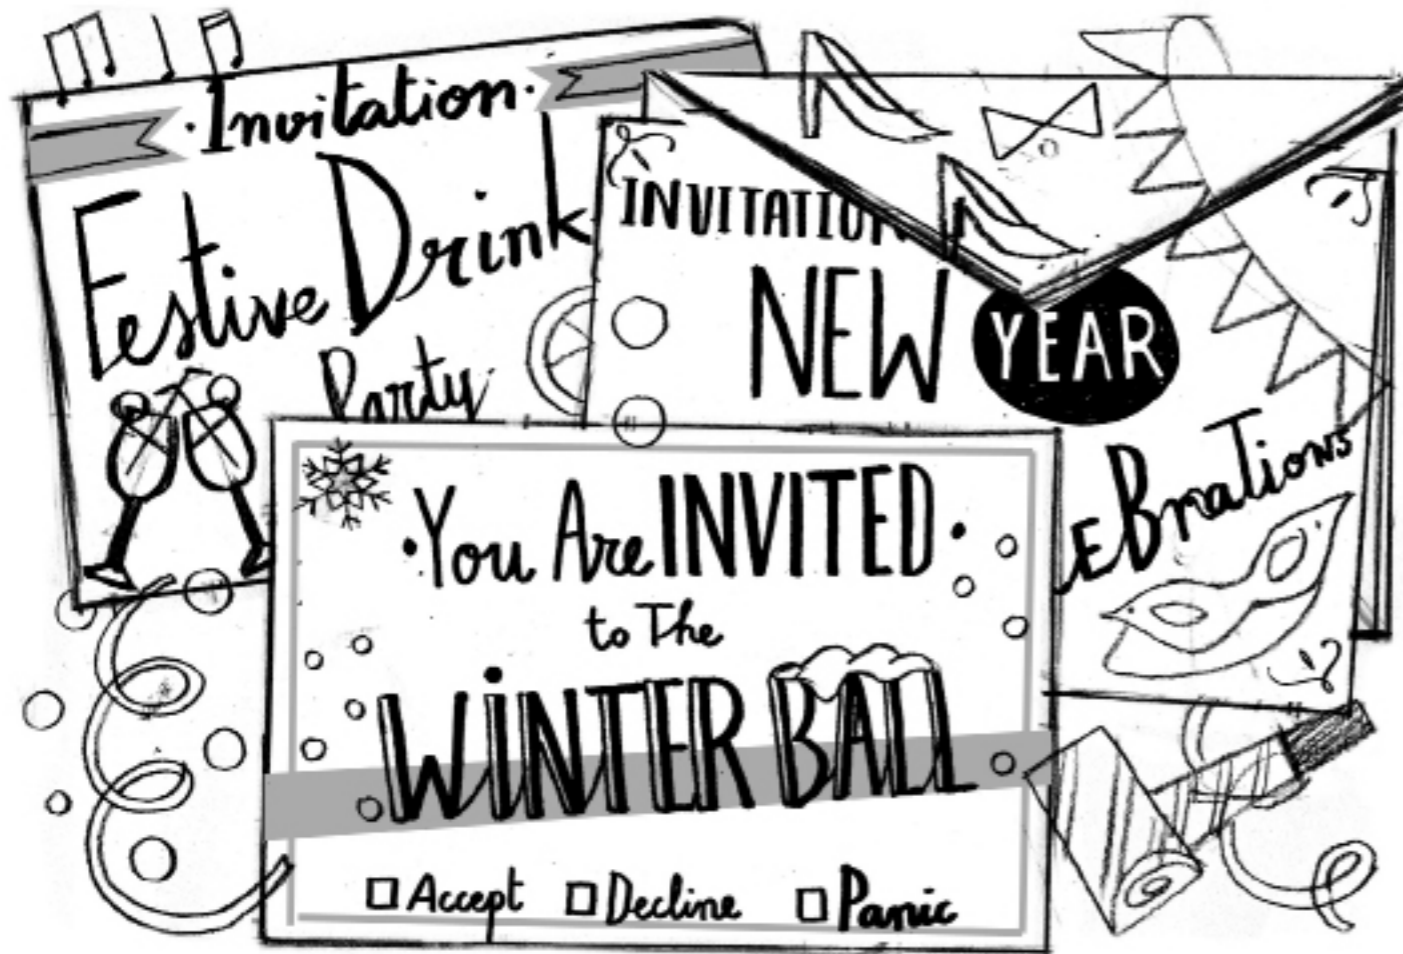 Invitation
Festive Drink
Party
INVITATION
NEW YEAR
EBrations
You Are INVITED
to The
WiNTER BALL
Accept Decline Panic